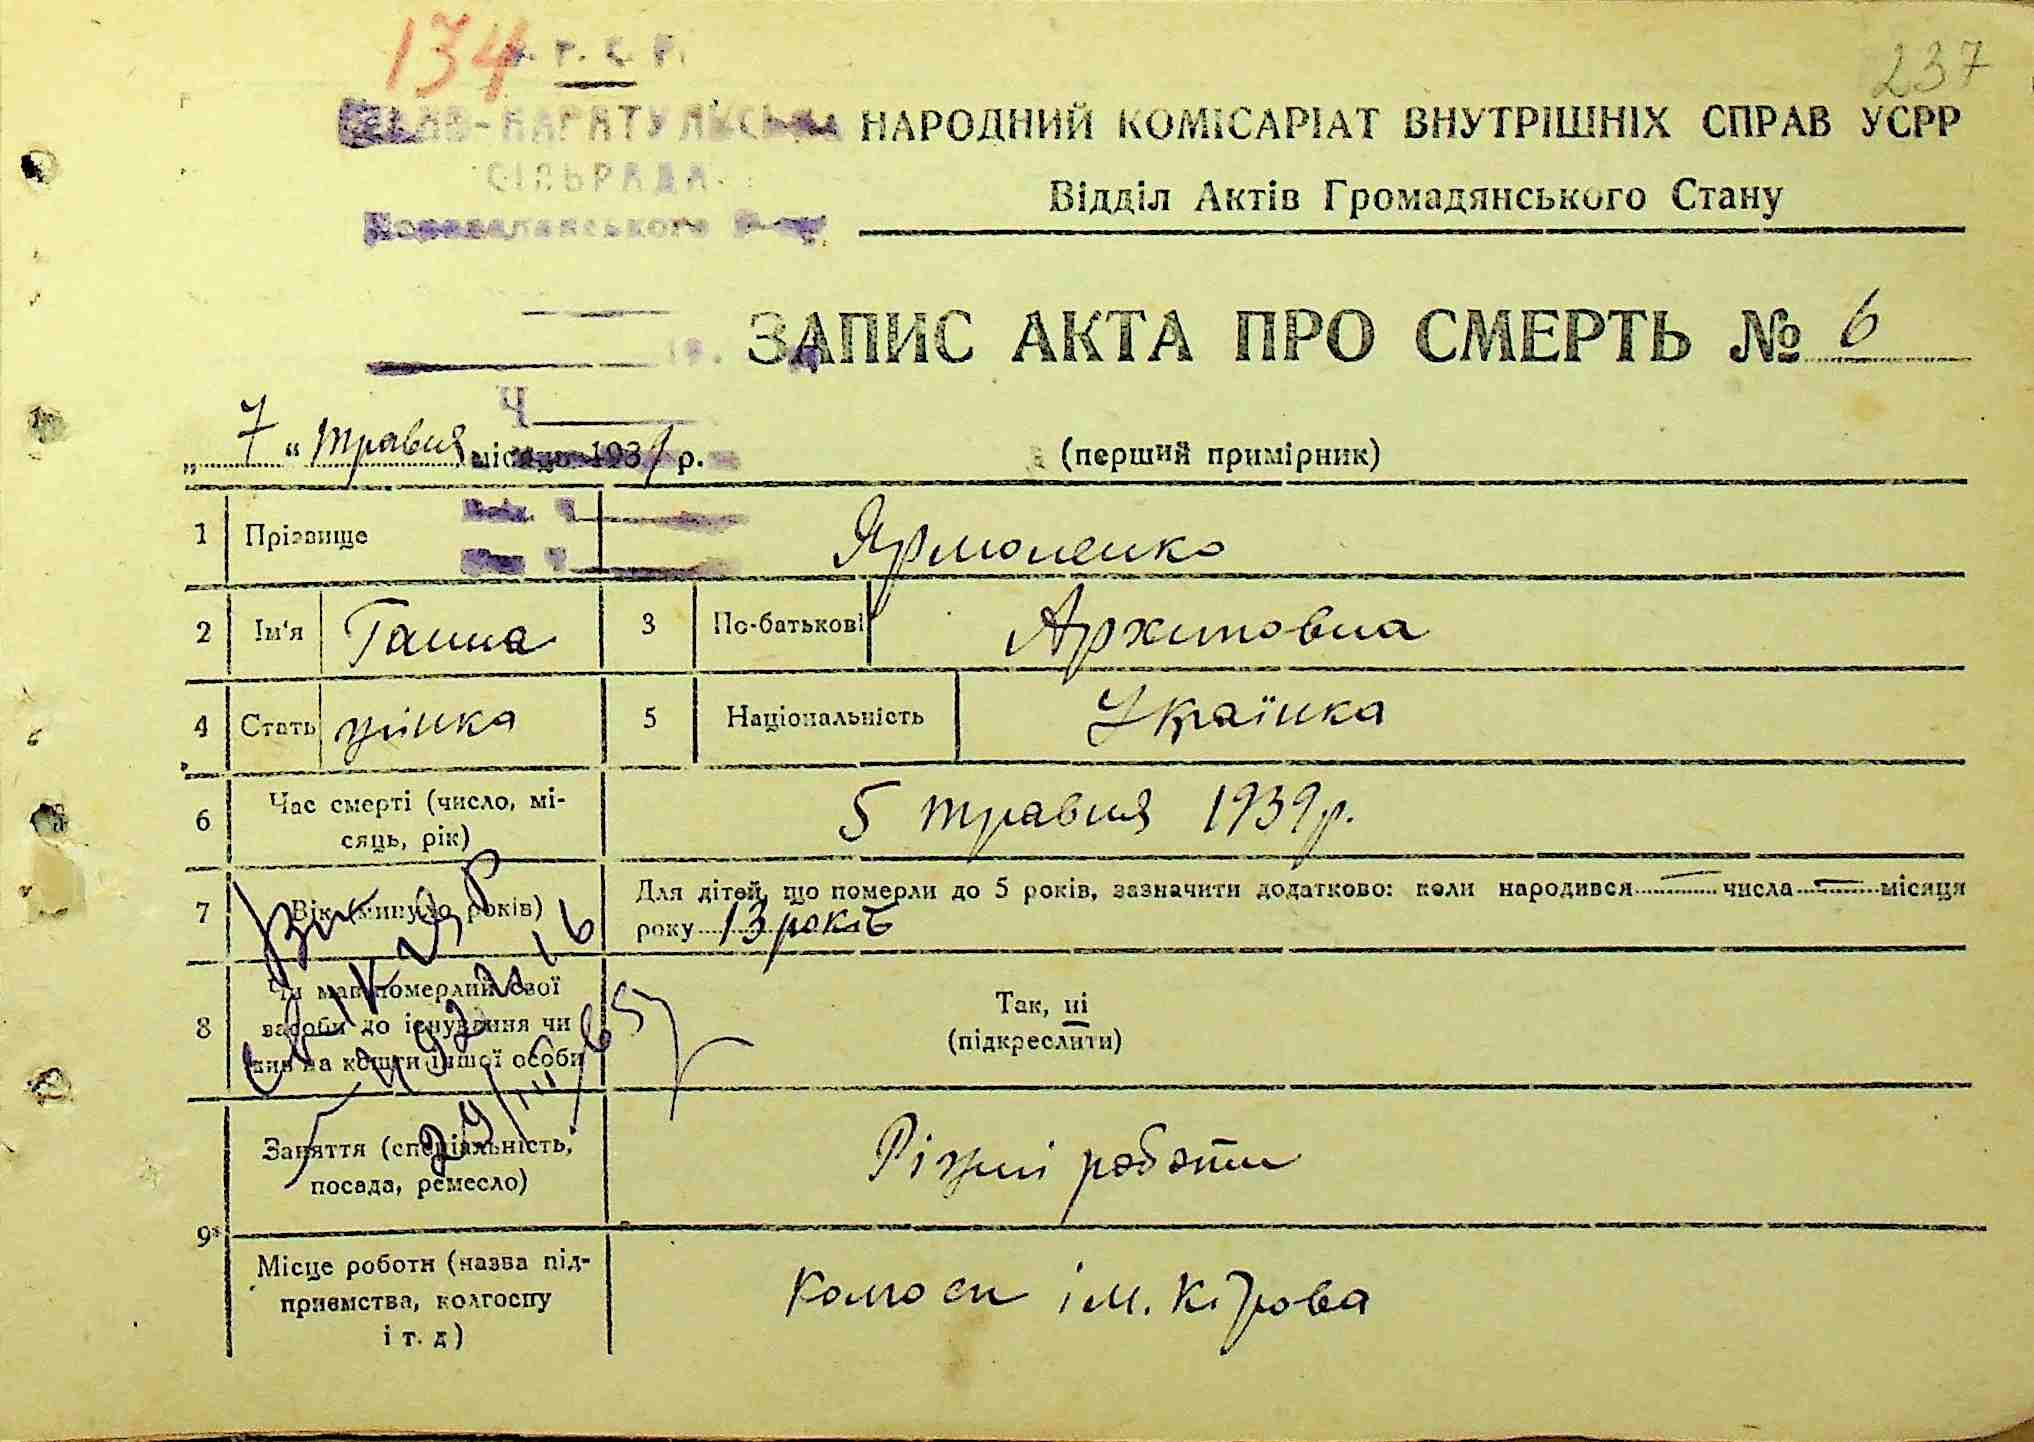 134
237
НАРОДНИЙ КОМІСАРІАТ ВНУТРІШНІХ СПРАВ УСРР
КАРАТУЛЬСЬКА
СІЛЬРАДА
Відділ Актів Громадянського Стану
ЗАПИС АКТА ПРО СМЕРТЬ № 6
„ 7 “ травня місяць 1939 р. (перший примірник)
1 Прізвище Ярмоленко
2 Ім'я Ганна 3 По-батькові Архиповна
4 Стать жінка 5 Національність Українка
6 Час смерті (число, мі-
сяць, рік) 5 травня 1939 р.
7 Вік (минуло років) Для дітей, що померли до 5 років, зазначити додатково: коли народився — числа — місяця
року 13 років
8 Чи мав померлий свої
засоби до існування чи
жив на кошти іншої особи
Так, ні
(підкреслити)
9 Заняття (спеціальність,
посада, ремесло) Різні роботи
Місце роботи (назва під-
приємства, колгоспу
і т. д) Колгосп ім. Кірова